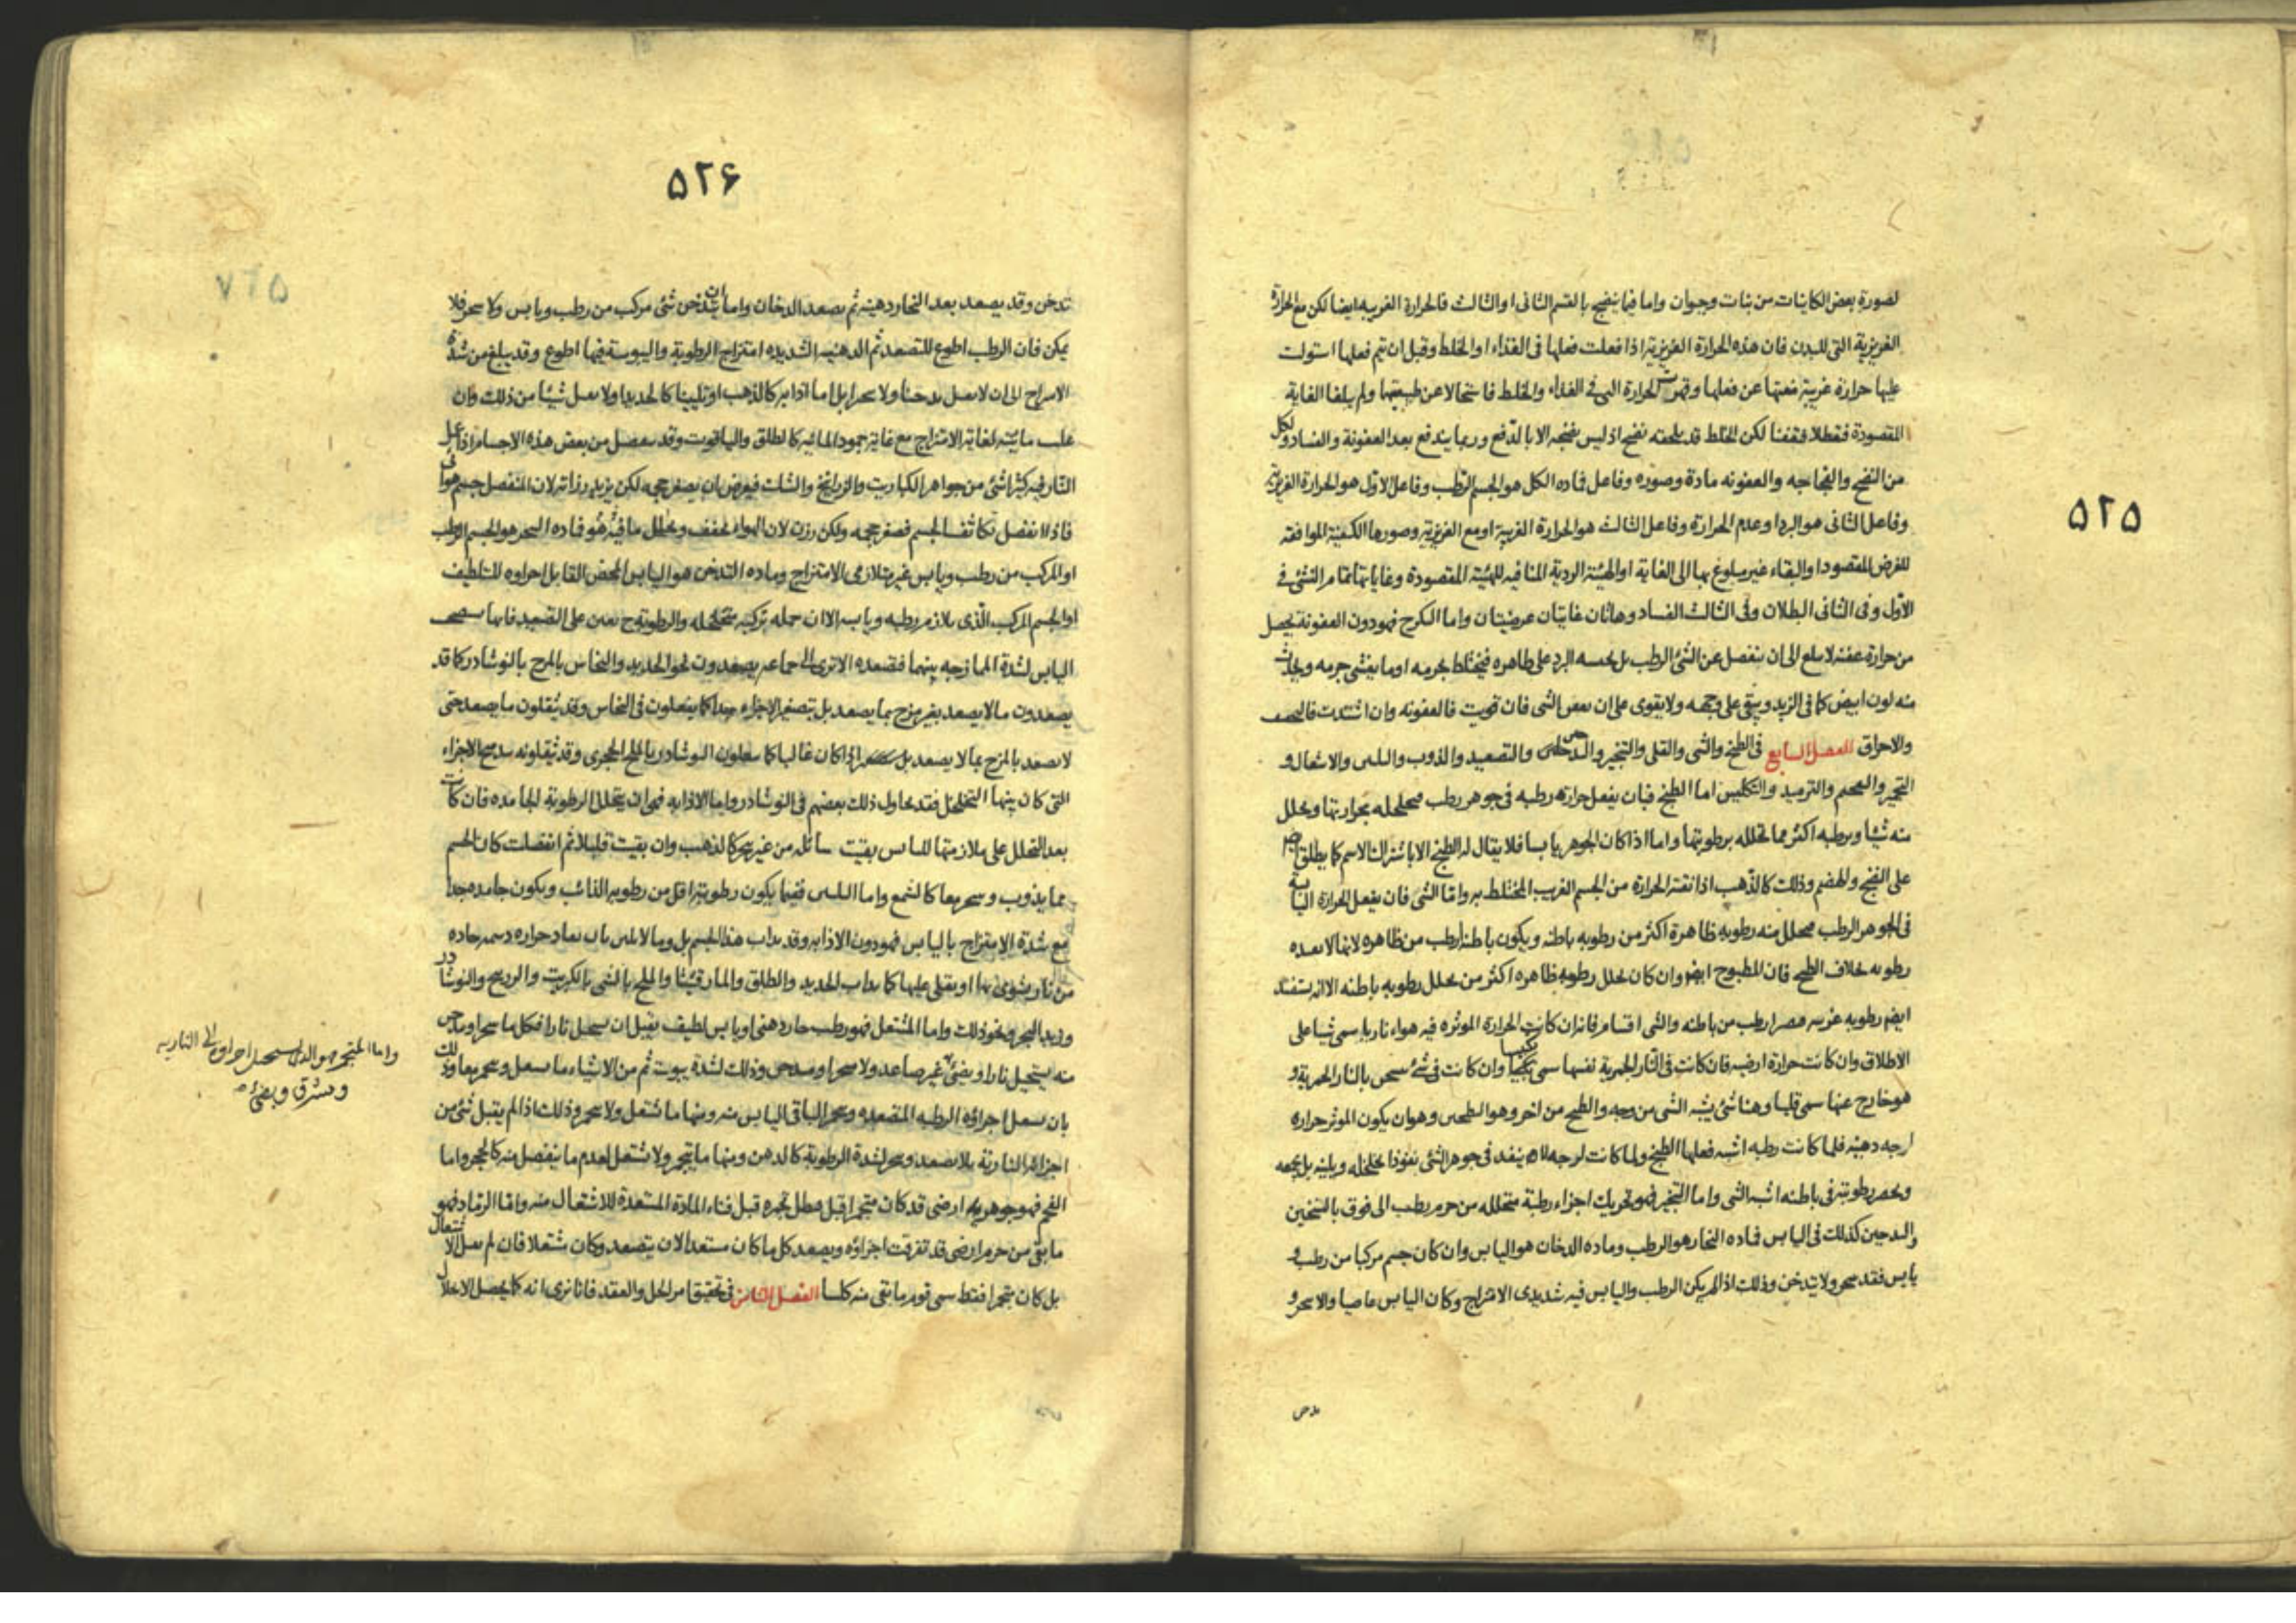 ۵۲۵
لصورة بعض الكاينات من نبات وحيوان واما فيما ينضج بالقسم الثانى او الثالث فالحرارة الغريبه ايضا لكن مع الحرارة
الغريزية التى للبدن فان هذه الحرارة الغريزية اذا فعلت فعلها فى الغذاء او الخلط وقبل ان تيم فعلها استولت
عليها حرارة غريبة منعتها عن فعلها وقهرت الحرارة التى فى الغذاء والخلط فاستحالا عن طبيعتها ولم يبلغا الغاية
المقصودة فبطلا وتعفنا لكن الخلط قد يلحقه نضج اذ ليس نضجه الا بالدفع وربما يندفع بعد العفونة والفساد ولكل
من النضج والفجاجه والعفونه مادة وصوره وفاعل فماده الكل هو الجسم الرطب وفاعل الاول هو الحرارة الغريزية
وفاعل الثانى هو البرد او عدم الحرارة وفاعل الثالث هو الحرارة الغريبة او مع الغريزية وصورها الكيفية الموافقه
للغرض المقصود او البقاء غير مبلوغ بها الى الغاية او الهيئة الردية المنافيه للهيئة المقصودة وغاياتها تمام النشئ فى
الاول وفى الثانى البطلان وفى الثالث الفساد وهاتان غايتان عرضيتان واما الكرج فهو دون العفونة يحصل
من حرارة عفنه لا يبلغ الى ان ينفصل عن الشئ الرطب بل يحبسه البرد على ظاهره فيختلط بجرمه او ما يغشى جرمه ويحدث
منه لون ابيض كما فى الزبد ويبقى على وجهه ولا يقوى على ان يعفن الشى فان قويت فالعفونه وان اشتدت فالتجفيف
والاحراق الفصل السابع فى الطبخ والشى والقلى والتبخير والتدخين والتصعيد والذوب والتليين والاشتعال و
التجمير والتفحيم والترميد والتكليس اما الطبخ فبان يفعل حرارة رطبه فى جوهر رطب يتخلخله بحرارتها ويحلل
منه شيئا ويرطبه اكثر مما تحلله برطوبتها واما اذا كان الجوهر يابسا فلا يقال له الطبخ الا باشتراك الاسم كما يطلق
على النضج والهضم وذلك كالذهب اذا نقته الحرارة من الجسم الغريب المختلط به واما الشى فان يفعل الحرارة اليابسة
فى الجوهر الرطب فيحلل منه رطوبه ظاهرة اكثر من رطوبه باطنه ويكون باطنه ارطب من ظاهره لانها لا يفيده
رطوبه بخلاف الطبخ فان المطبوخ ايضا وان كان تحلل رطوبه ظاهره اكثر من تحلل رطوبه باطنه الا انه يستفيد
ايضا رطوبه غريبه فيصير ارطب من باطنه والشى اقسام فانه ان كانت الحرارة الموثره فيه هواء ناريا سمى شيا على
الاطلاق وان كانت حرارة ارضيه فان كانت فى النار الجمرية نفسها سمى تكبيبا وان كانت فى شئ سخن بالنار الجمرية و
هو خارج عنها سمى قليا وهنا شئ يشبه الشى من وجه والطبخ من اخر وهو التطجين وهو ان يكون الموثر حرارة
لزجه دهنية فلما كانت رطبه اشبه فعلها الطبخ ولما كانت لزجه لا ينفذ فى جوهر الشئ نفوذا يخلخله ويلينه بل يجمعه
ويحصر رطوبته فى باطنه اشبه الشى واما التبخير فهو تحريك اجزاء رطبة متحلله من جرم رطب الى فوق بالتسخين
والتدخين كذلك فى اليابس فماده البخار هو الرطب وماده الدخان هو اليابس وان كان جسم مركبا من رطب و
يابس فقد يتبخر ولا يتدخن وذلك اذا لم يكن الرطب واليابس فيه شديدى الامتزاج وكان اليابس عاصيا والا تبخر و
تدخن
۵۲۶
تدخن وقد يصعد بعد البخار دهنية ثم يصعد الدخان واما ان يتدخن شئ مركب من رطب ويابس ولا يتبخر فلا
يمكن فان الرطب اطوع للتصعد ثم الدهنيه الشديده امتزاج الرطوبة واليبوسة فيها اطوع وقد يبلغ من شدة
الامتزاج الى ان لا يقبل تدخينا ولا تبخيرا بل اما اذابه كالذهب او تليينا كالحديد او لا يقبل شيئا من ذلك وان
غلبت مائيته لغاية الامتزاج مع غاية جمود المائيه كالطلق والياقوت وقد ينفصل من بعض هذه الاجسام اذا عمل
النار فيه كثيرا شئ من جواهر الكباريت والزرانيخ والشك فيعرض ان يصغر حجمه لكن يزيد رزانته لان المنفصل جسم هوائى
فاذا انفصل تكاثف الجسم فصغر حجمه ولكن رزن لان الهواء يخفف ويخلل ما فيه هو فماده التبخر هو الجسم الرطب
او المركب من رطب ويابس غير متلازمى الامتزاج وماده التدخن هو اليابس المحض القابل اجزاوه للتلطيف
او الجسم المركب الذى تلازم رطبه ويابسه الا ان جمله تركيبه متخلخله والرطوبة ح تعين على التصعيد فانها يستصحب
اليابس لشدة الممازجه بينهما فتصعده الا ترى الى جماعه يصعدون نحو الحديد والنحاس بالمزج بالنوشادر كما قد
يصعدون ما لا يصعد بغير مزج بما يصعد بل بتصغير الاجزاء جدا كما يفعلون فى النحاس وقد يثقلون ما يصعد حتى
لا يصعد بالمزج بما لا يصعد بل اذا كان غالبا كما يفعلون النوشادر بالملح الحجرى وقد يثقلونه بتدميج الاجزاء
التى كان بينها التخلخل فقد يحاول ذلك بعضهم فى النوشادر واما الاذابه فهى ان يتحلل الرطوبة الجامده فان كانت
بعد التحلل على ملازمتها لليابس بقيت سائله من غير تبخر كالذهب وان بقيت قليلا ثم انفصلت كان الجسم
مما يذوب ويتبخر معا كالشمع واما التليين ففيما يكون رطوبته اقل من رطوبه الذائب ويكون جامده جدا
مع شدة الامتزاج باليابس فهو دون الاذابه وقد يذاب هذا الجسم بل وما لا يلين بان يفاد حراره دسمه حاده
من نار يشوى بها او يقلى عليها كما يذاب الحديد والطلق والمارقشيثا والملح بالشى بالكبريت والزرنيخ والنوشادر
وزبد البحر ونحو ذلك واما المشتعل فهو رطب حار دهنى او يابس لطيف يقبل ان يستحيل نارا فكل ما يتبخر او يتدخن
منه يستحيل نارا ويضئ غير صاعد ولا متبخر او متدخن وذلك لشدة يبوسته ثم من الاشياء ما يشتعل ويتجمر معا وذلك
بان يشتعل اجزاؤه الرطبه المتصعده ويتجمر الباقى اليابس منه ومنها ما يشتعل ولا يتجمر وذلك اذا لم يقبل شئ من
اجزائه النارية بلا تصعد وتبخر لشدة الرطوبة كالدهن ومنها ما يتجمر ولا يشتعل لعدم ما ينفصل منه كالحجر واما
الفحم فهو جوهر ارضى قد كان متجمرا قبل فبطل تجمره قبل فناء المادة المستعدة للاشتعال منه واما الرماد فهو
ما بقى من جرم ارضى قد تفرقت اجزاؤه ويصعد كل ما كان مستعدا لان يتصعد وكان مشتعلا فان لم يقبل الاشتعال
بل كان متجمرا فقط سمى قوم ما بقى منه كلسا الفصل الثامن فى تحقيق امر الحل والعقد فانا نرى انه كما يحصل الانحلال
واما المتجمر فهو الذى يستحيل اجزاوه الى الناريه
وتشرق وتضئ صح